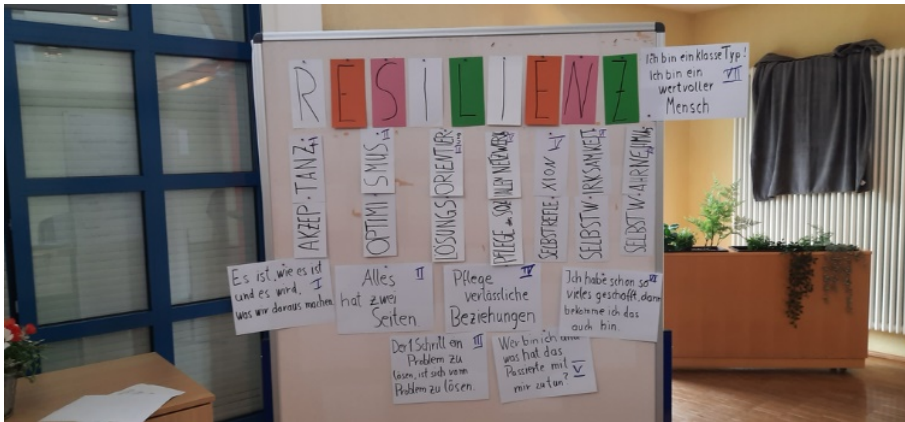 RESILIENZ
Ich bin ein klasse Typ!
Ich bin ein VII
wertvoller
Mensch
AKZEP·TANZ I
OPTIMI·SMUS II
LÖSUNGSORIENTIER
PFLEGE des SOZIALEN NETZWERK
SELBSTREFLE·XION V
SELBSTW·IRKSAMKEIT
SELBSTW·AHRNEHMUNG
Es ist, wie es ist
und es wird, I
was wir daraus machen
Alles II
hat zwei
Seiten.
Pflege IV
verlässliche
Beziehungen
Ich habe schon so VI
vieles geschafft, dann
bekomme ich das
auch hin.
Der 1 Schritt ein III
Problem zu
lösen, ist sich vom
Problem zu lösen.
Wer bin ich und
was hat das
Passierte mit V
mir zu tun?